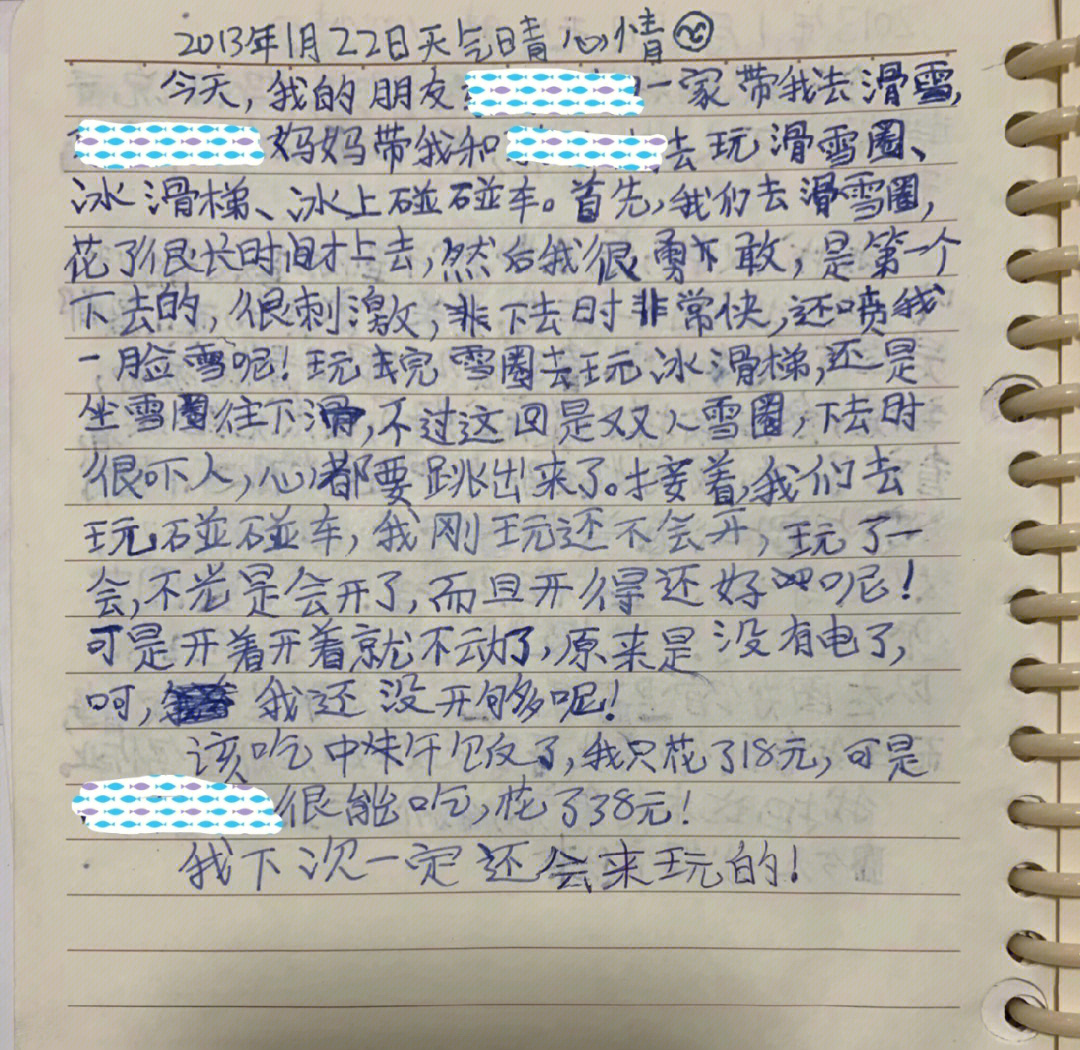 2013年1月22日天气晴 心情
今天,我的朋友一家带我去滑雪,
妈妈带我和去玩滑雪圈、
冰滑梯、冰上碰碰车。首先,我们去滑雪圈,
花了很长时间才上去,然后我很勇敢,是第一个
下去的,很刺激,下去时非常快,还喷我
一脸雪呢!玩完雪圈去玩冰滑梯,还是
坐雪圈往下滑,不过这回是双人雪圈,下去时
很吓人,心都要跳出来了。接着,我们去
玩碰碰车,我刚玩还不会开,玩了一
会,不光是会开了,而且开得还好呢!
可是开着开着就不动了,原来是没有电了,
呵,我还没开够呢!
该吃中午饭了,我只花了18元,可是
很能吃,花了38元!
我下次一定还会来玩的!